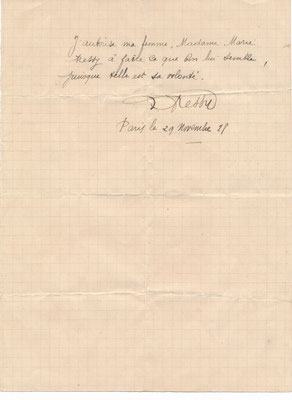 J'autorise ma femme, Madame Marie
Ressy à faire ce que bon lui semble,
puisque telle est sa volonté.
Ressy
Paris le 29 Novembre